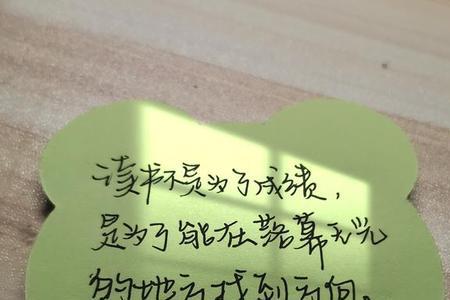 读书不是为了成绩，
是为了能在落幕无光
的地方找到方向。